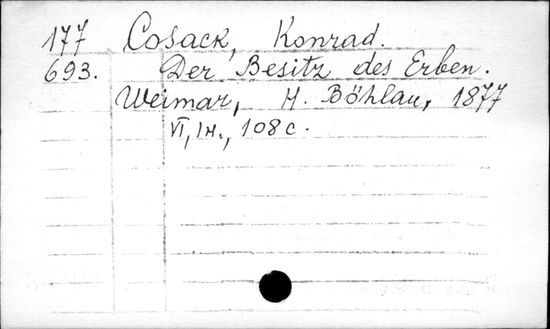 177 Cosack, Konrad.
693. Der Besitz des Erben.
Weimar, H. Böhlau, 1877
VI, IH., 108 c.